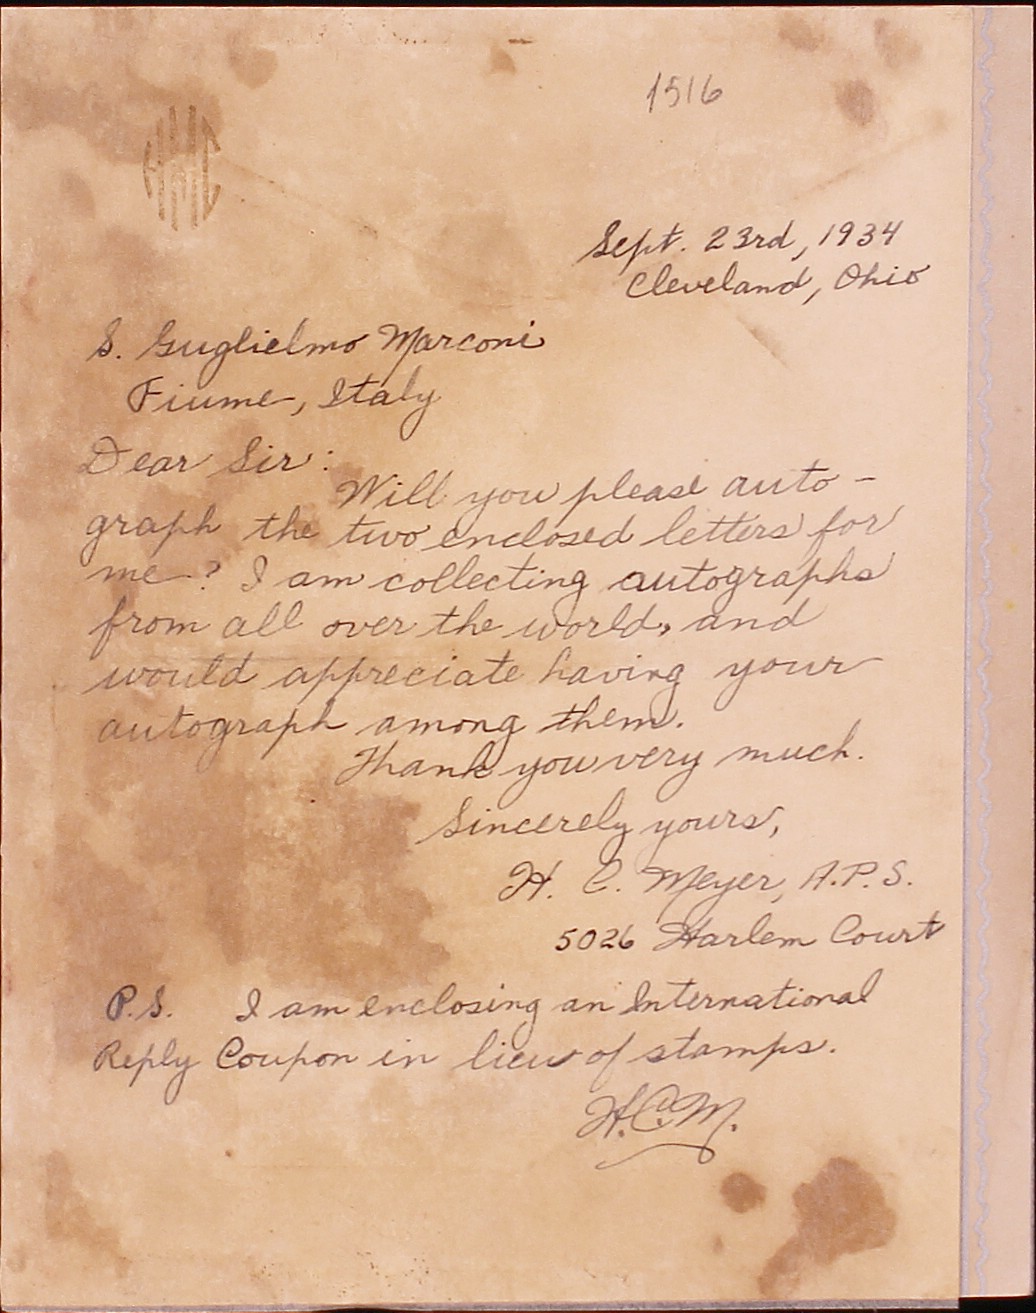 1516
HMC
Sept. 23rd, 1934
Cleveland, Ohio
S. Guglielmo Marconi
Fiume, Italy
Dear Sir:
Will you please auto-
graph the two enclosed letters for
me? I am collecting autographs
from all over the world, and
would appreciate having your
autograph among them.
Thank you very much.
Sincerely yours,
H. C. Meyer, A.P.S.
5026 Harlem Court
P.S. I am enclosing an International
Reply Coupon in lieu of stamps.
H.C.M.